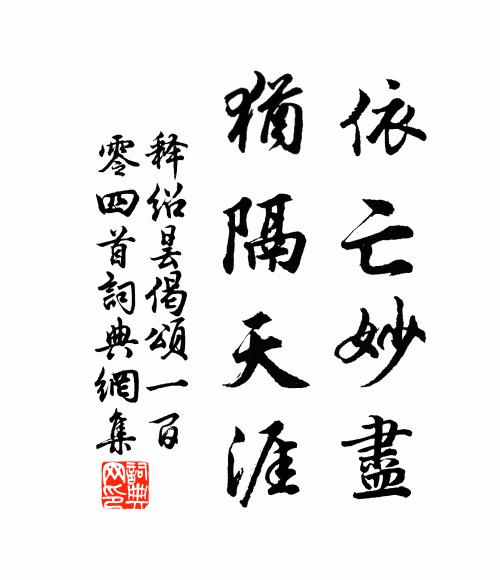 依亡妙盡
猶隔天涯
释绍昙偈頌一百
零四首詞典網集
詞典网印